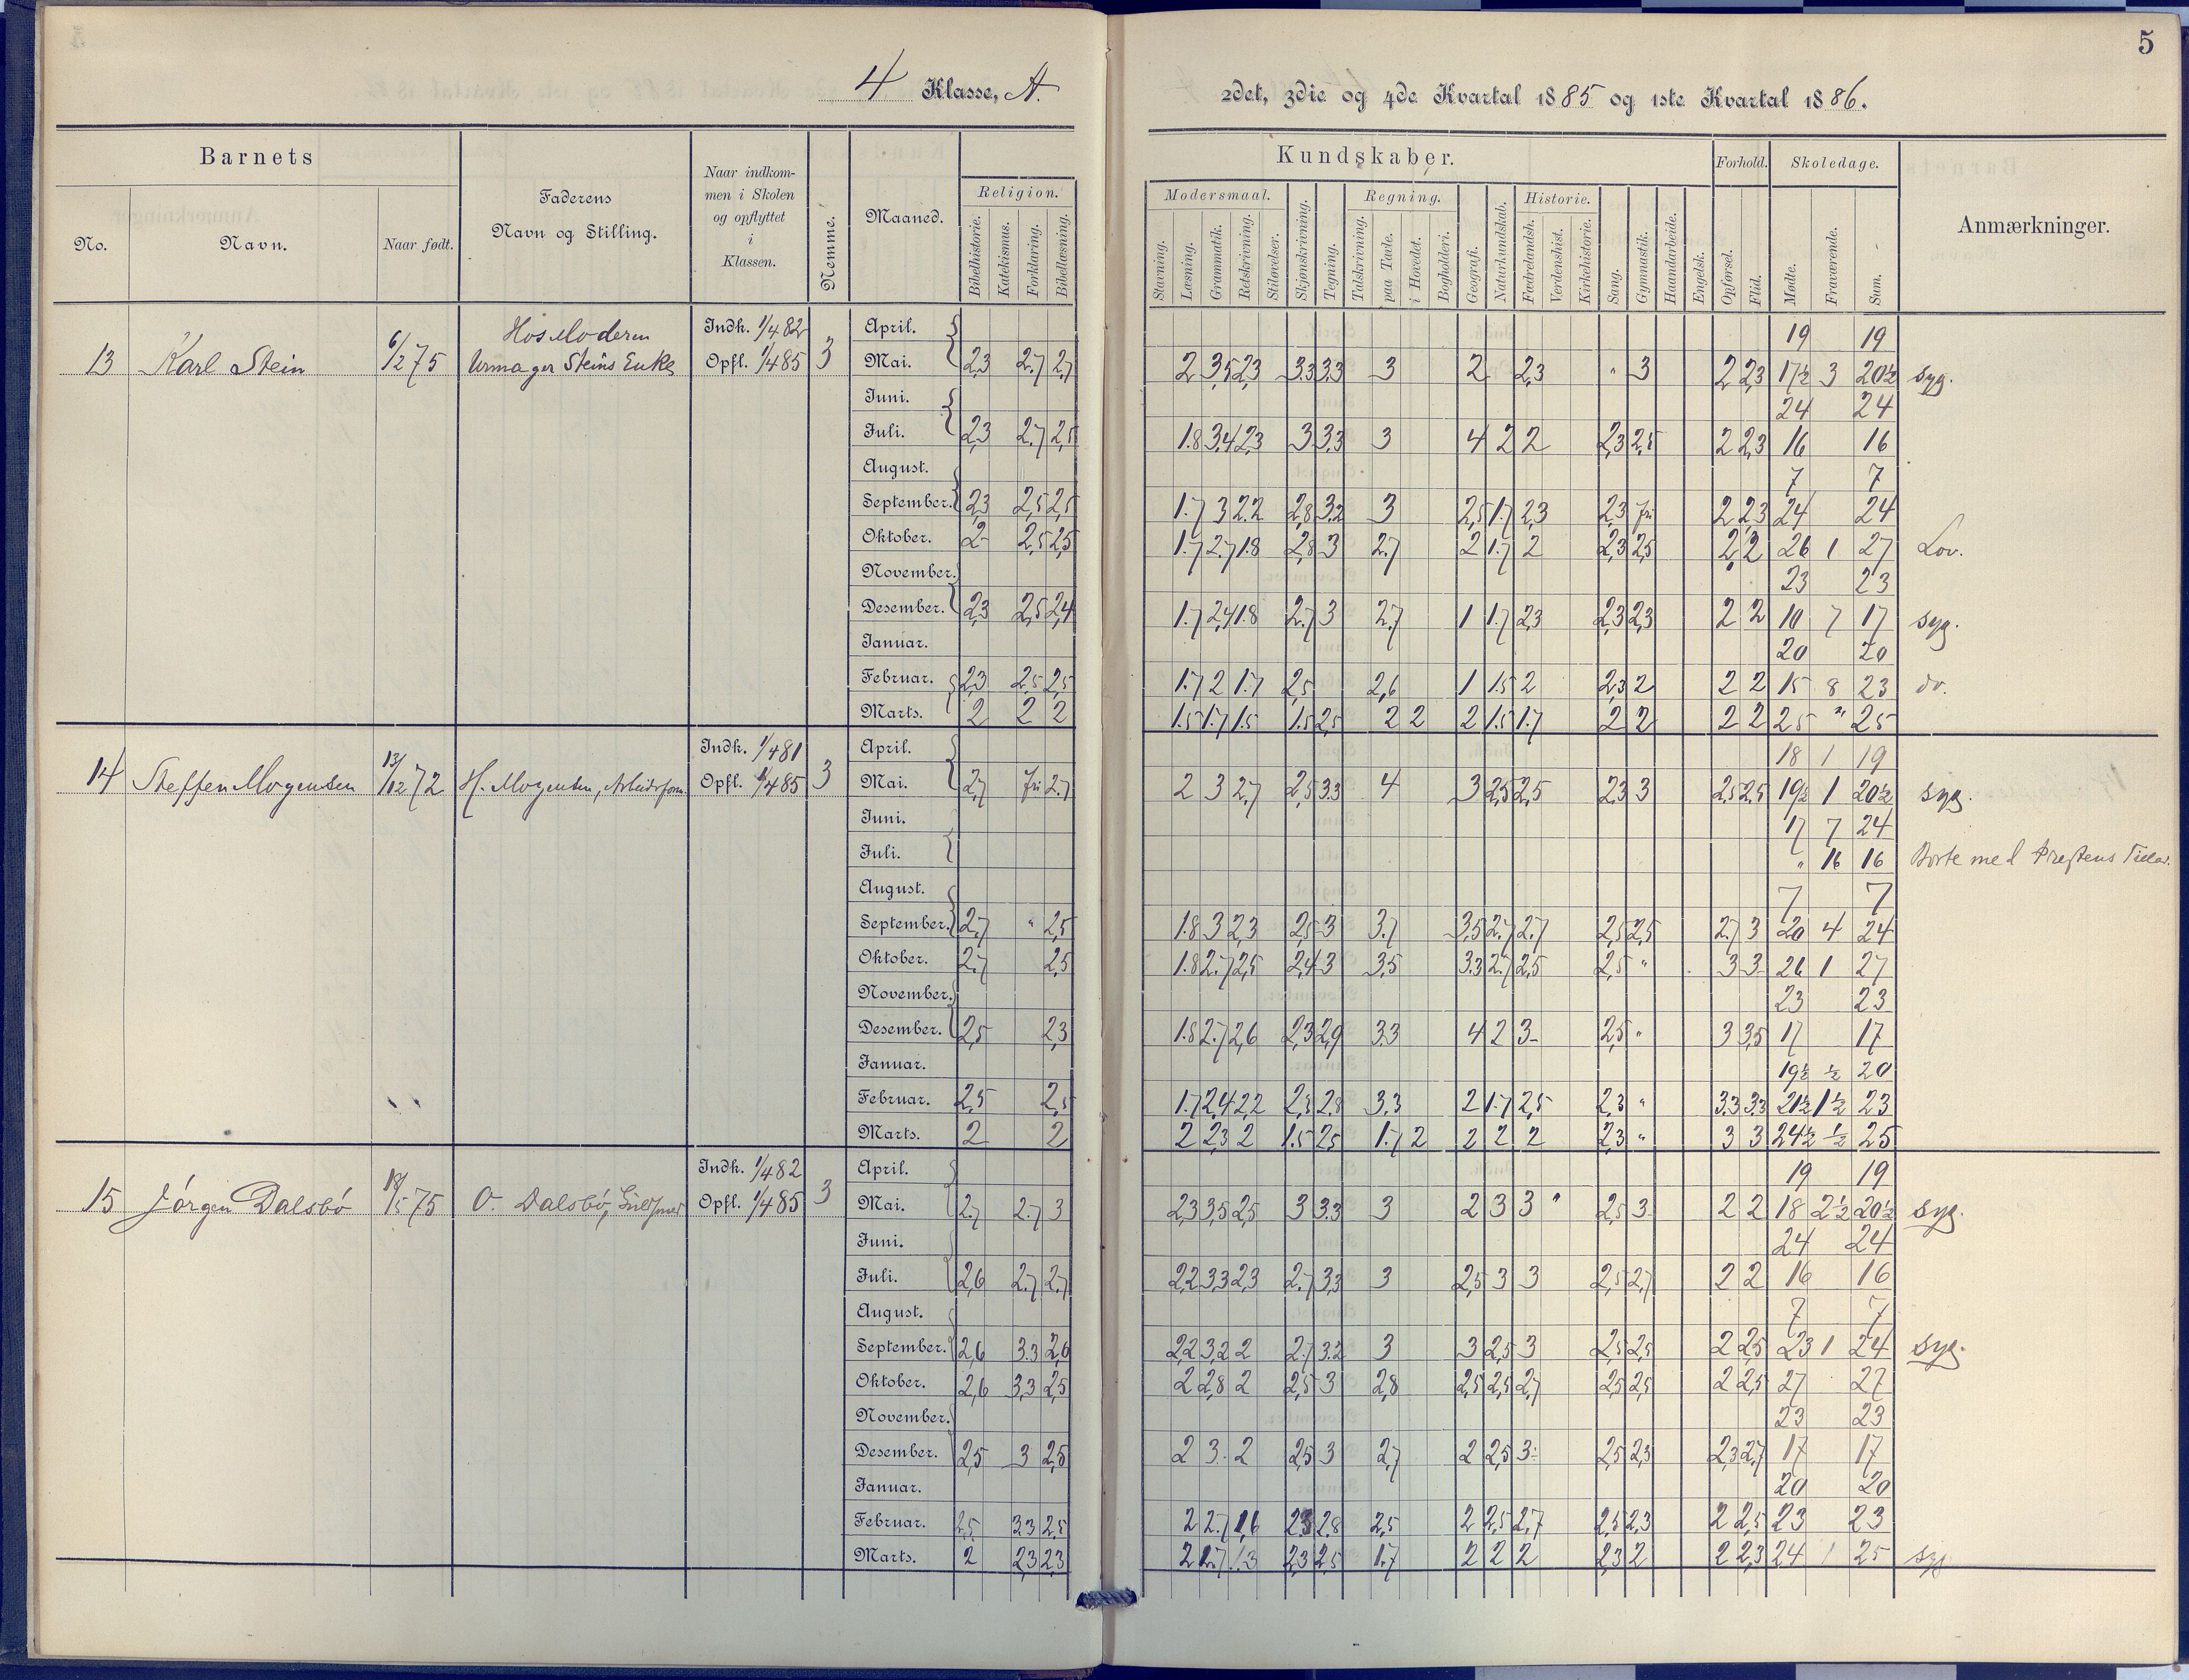 5
4 Klasse, A.
2det, 3die og 4de Kvartal 1885 og 1ste Kvartal 1886.
Barnets
No.
Navn.
Naar født.
Faderens
Navn og Stilling.
Naar indkom-
men i Skolen
og opflyttet
i
Klassen.
Nemme.
Maaned.
Religion.
Bibelhistorie.
Katekismus.
Forklaring.
Bibellæsning.
Kundskaber.
Modersmaal.
Stavning.
Læsning.
Grammatik.
Retskrivning.
Stiløvelser.
Skjønskrivning.
Tegning.
Regning.
Talskrivning.
paa Tavle.
i Hovedet.
Bogholderi.
Geografi.
Naturkundskab.
Historie.
Fædrelandsh.
Verdenshist.
Kirkehistorie.
Sang.
Gymnastik.
Haandarbeide.
Engelsk.
Forhold.
Opførsel.
Flid.
Skoledage.
Mødte.
Fraværende.
Sum.
Anmærkninger.
13 Karl Stein 6/2 75 Hos Moderen
Urmager Steins Enke
Indk. 1/4 82
Opfl. 1/4 85 3
April. 19 19
Mai. 2,3 2,7 2,7 2 3,5 2,3 3.3 3.3 3 2 2,3 " 3 2 2,3 17½ 3 20½ syg.
Juni. 24 24
Juli. 2,3 2,7 2,5 1.8 3,4 2,3 3 3,3 3 4 2 2 2,3 2,5 2 2,3 16 16
August. 7 7
September. 2,3 2,5 2,5 1.7 3 2.2 2,8 3.2 3 2,5 1.7 2,3 2,3 fri 2 2,3 24 24
Oktober. 2 2,5 2,5 1.7 2.7 1.8 2,8 3 2.7 2 1.7 2 2,3 2,5 2 2 26 1 27 Lov.
November. 23 23
Desember. 2,3 2,5 2,4 1.7 2,4 1.8 2.7 3 2,7 1 1.7 2,3 2,3 2,3 2 2 10 7 17 syg.
Januar. 20 20
Februar. 2,3 2,5 2,5 1.7 2 1.7 2,5 2,6 1 1.5 2 2,3 2 2 2 15 8 23 do.
Marts. 2 2 2 1.5 1.7 1.5 1.5 2,5 2 2 2 1.5 1.7 2 2 2 2 25 " 25
14 Steffen Mogensen 13/12 72 H. Mogensen, Arbeidsform.
Indk. 1/4 81
Opfl. 1/4 85 3
April. 18 1 19
Mai. 2,7 fri 2.7 2 3 2,7 2,5 3.3 4 3 2,5 2,5 2,3 3 2,5 2,5 19½ 1 20½ syg.
Juni. 17 7 24
Juli. " 16 16 Borte med Prestens Tillad.
August. 7 7
September. 2,7 " 2,5 1.8 3 2,3 2,5 3 3.7 3,5 2.7 2.7 2,5 2,5 2.7 3 20 4 24
Oktober. 2.7 2,5 1.8 2.7 2,5 2,4 3 3,5 3.3 2.7 2,5 2,5 " 3 3 26 1 27
November. 23 23
Desember. 2,5 2,3 1.8 2.7 2,6 2,3 2,9 3.3 4 2 3 2,5 " 3 3,5 17 17
Januar. 19½ ½ 20
Februar. 2,5 2,5 1.7 2,4 2,2 2,3 2.8 3.3 2 1.7 2,5 2,3 " 3.3 3.3 21½ 1½ 23
Marts. 2 2 2 2,3 2 1.5 2,5 1.7 2 2 2 2 2,3 " 3 3 24½ ½ 25
15 Jørgen Dalsbö 18/5 75 O. Dalsbö,
Indk. 1/4 82
Opfl. 1/4 85 3
April. 19 19
Mai. 2.7 2.7 3 2,3 3,5 2,5 3 3.3 3 2 3 3 " 2,5 3 2 2 18 2½ 20½ syg.
Juni. 24 24
Juli. 2,6 2.7 2.7 2,2 3.3 2,3 2.7 3,3 3 2,5 3 3 2,5 2,7 2 2 16 16
August. 7 7
September. 2,6 3.3 2,6 2,2 3,2 2 2.7 3.2 3 3 2,5 3 2,5 2,5 2 2,5 23 1 24 syg.
Oktober. 2,6 3,3 2,5 2 2,8 2 2,5 3 2,8 2,5 2,5 2,7 2,5 2,5 2 2,5 27 27
November. 23 23
Desember. 2,5 3 2,5 2 3 2 2,5 3 2,7 2 2,5 3 2,5 2,3 2,3 2,7 17 17
Januar. 20 20
Februar. 2,5 3.3 2,5 2 2.7 1,6 2,3 2.8 2,5 2 2,5 2,7 2,5 2,3 2 2,5 23 23
Marts. 2 2,3 2,3 2 2,3 2,5 1.7 2 2 2 2,3 2 2 2,3 24 1 25 syg